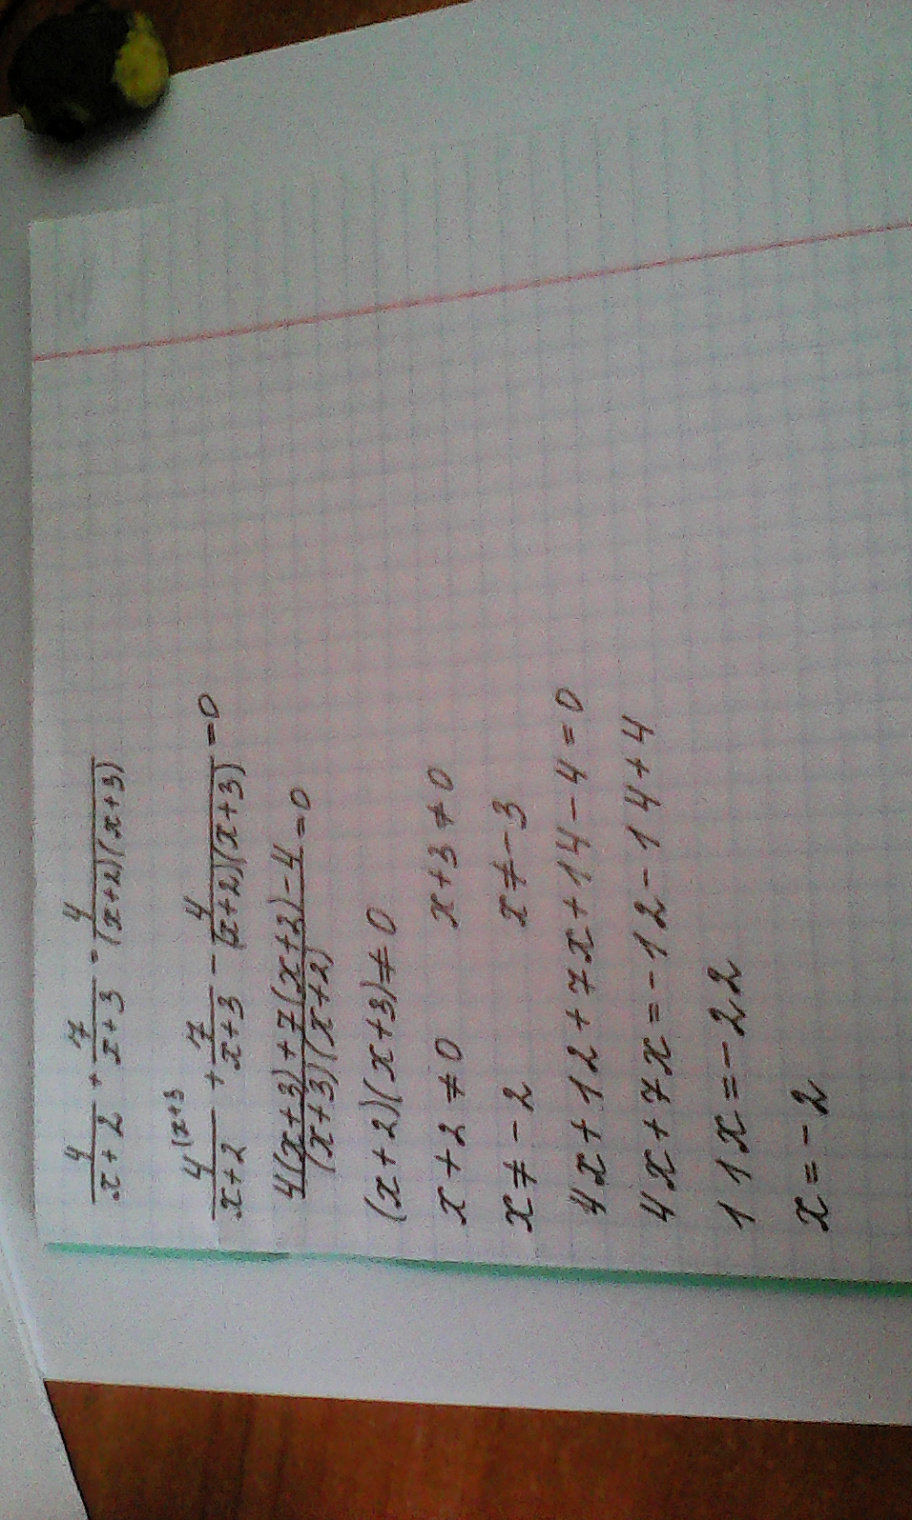 4/(x+2) + 7/(x+3) = 4/((x+2)(x+3))
4(x+3/(x+2) + 7/(x+3) - 4/((x+2)(x+3)) = 0
(4(x+3)+7(x+2)-4)/((x+3)(x+2)) = 0
(x+2)(x+3)≠0
x+2≠0 x+3≠0
x≠-2 x≠-3
4x+12+7x+14-4=0
4x+7x=-12-14+4
11x=-22
x=-2